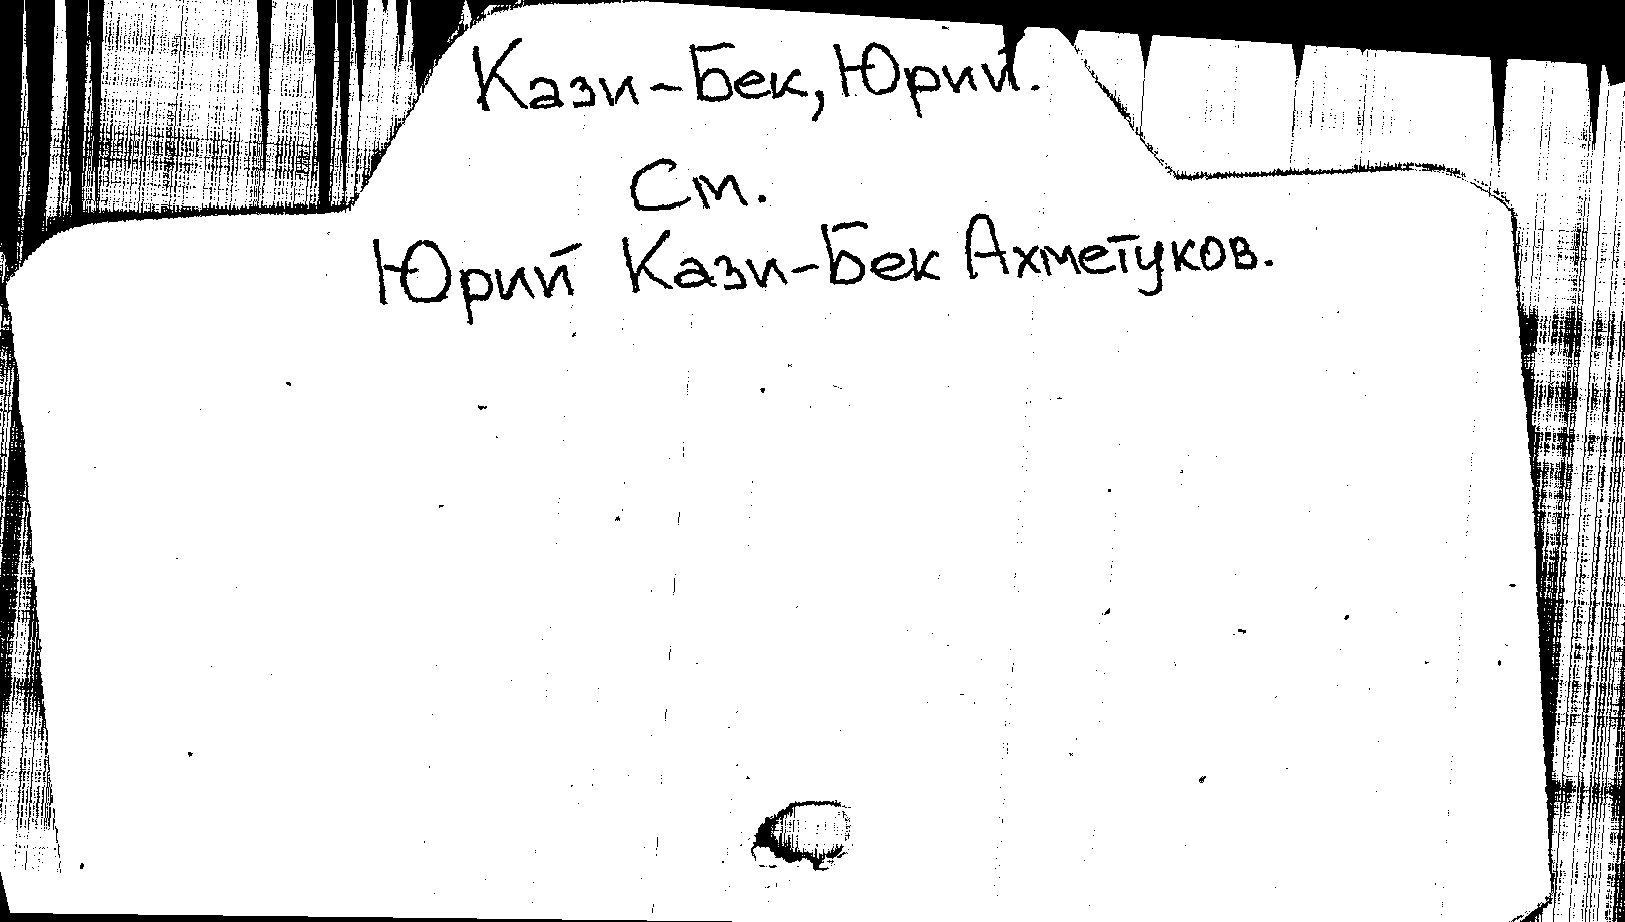 Кази-Бек, Юрий.
См.
Юрий Кази-Бек Ахметуков.